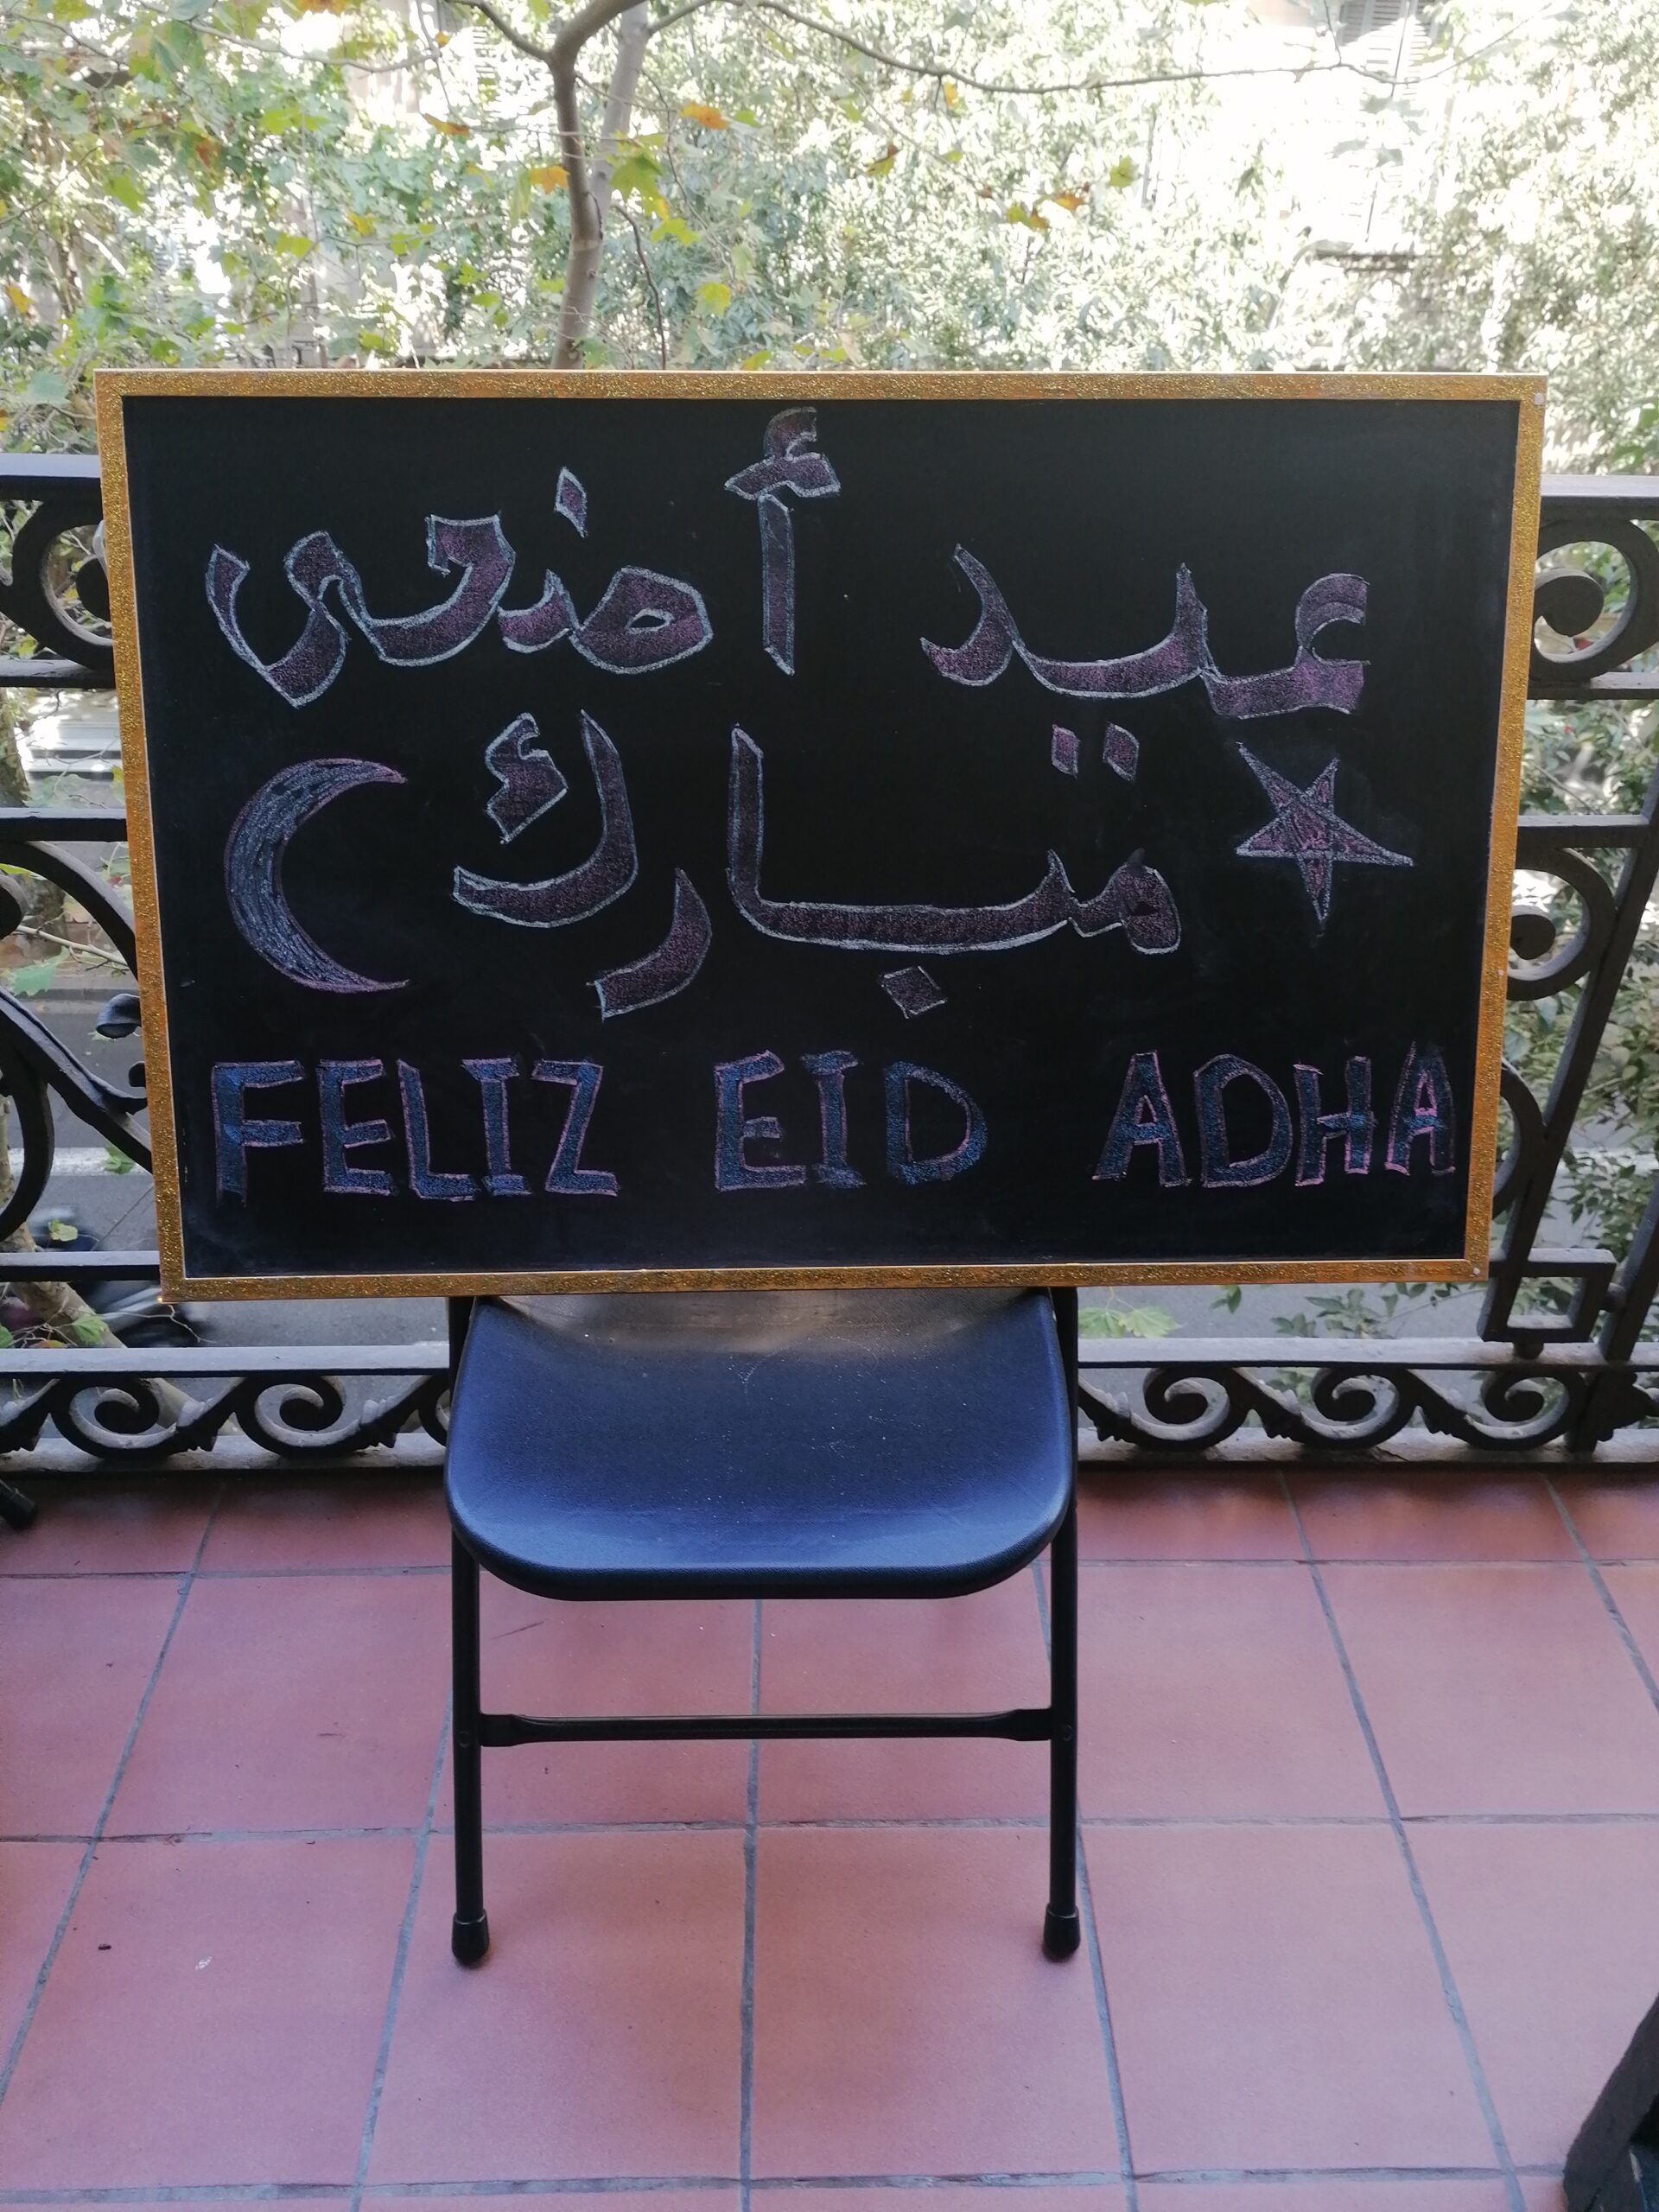 عيد أضحى
مبارك
FELIZ EID ADHA